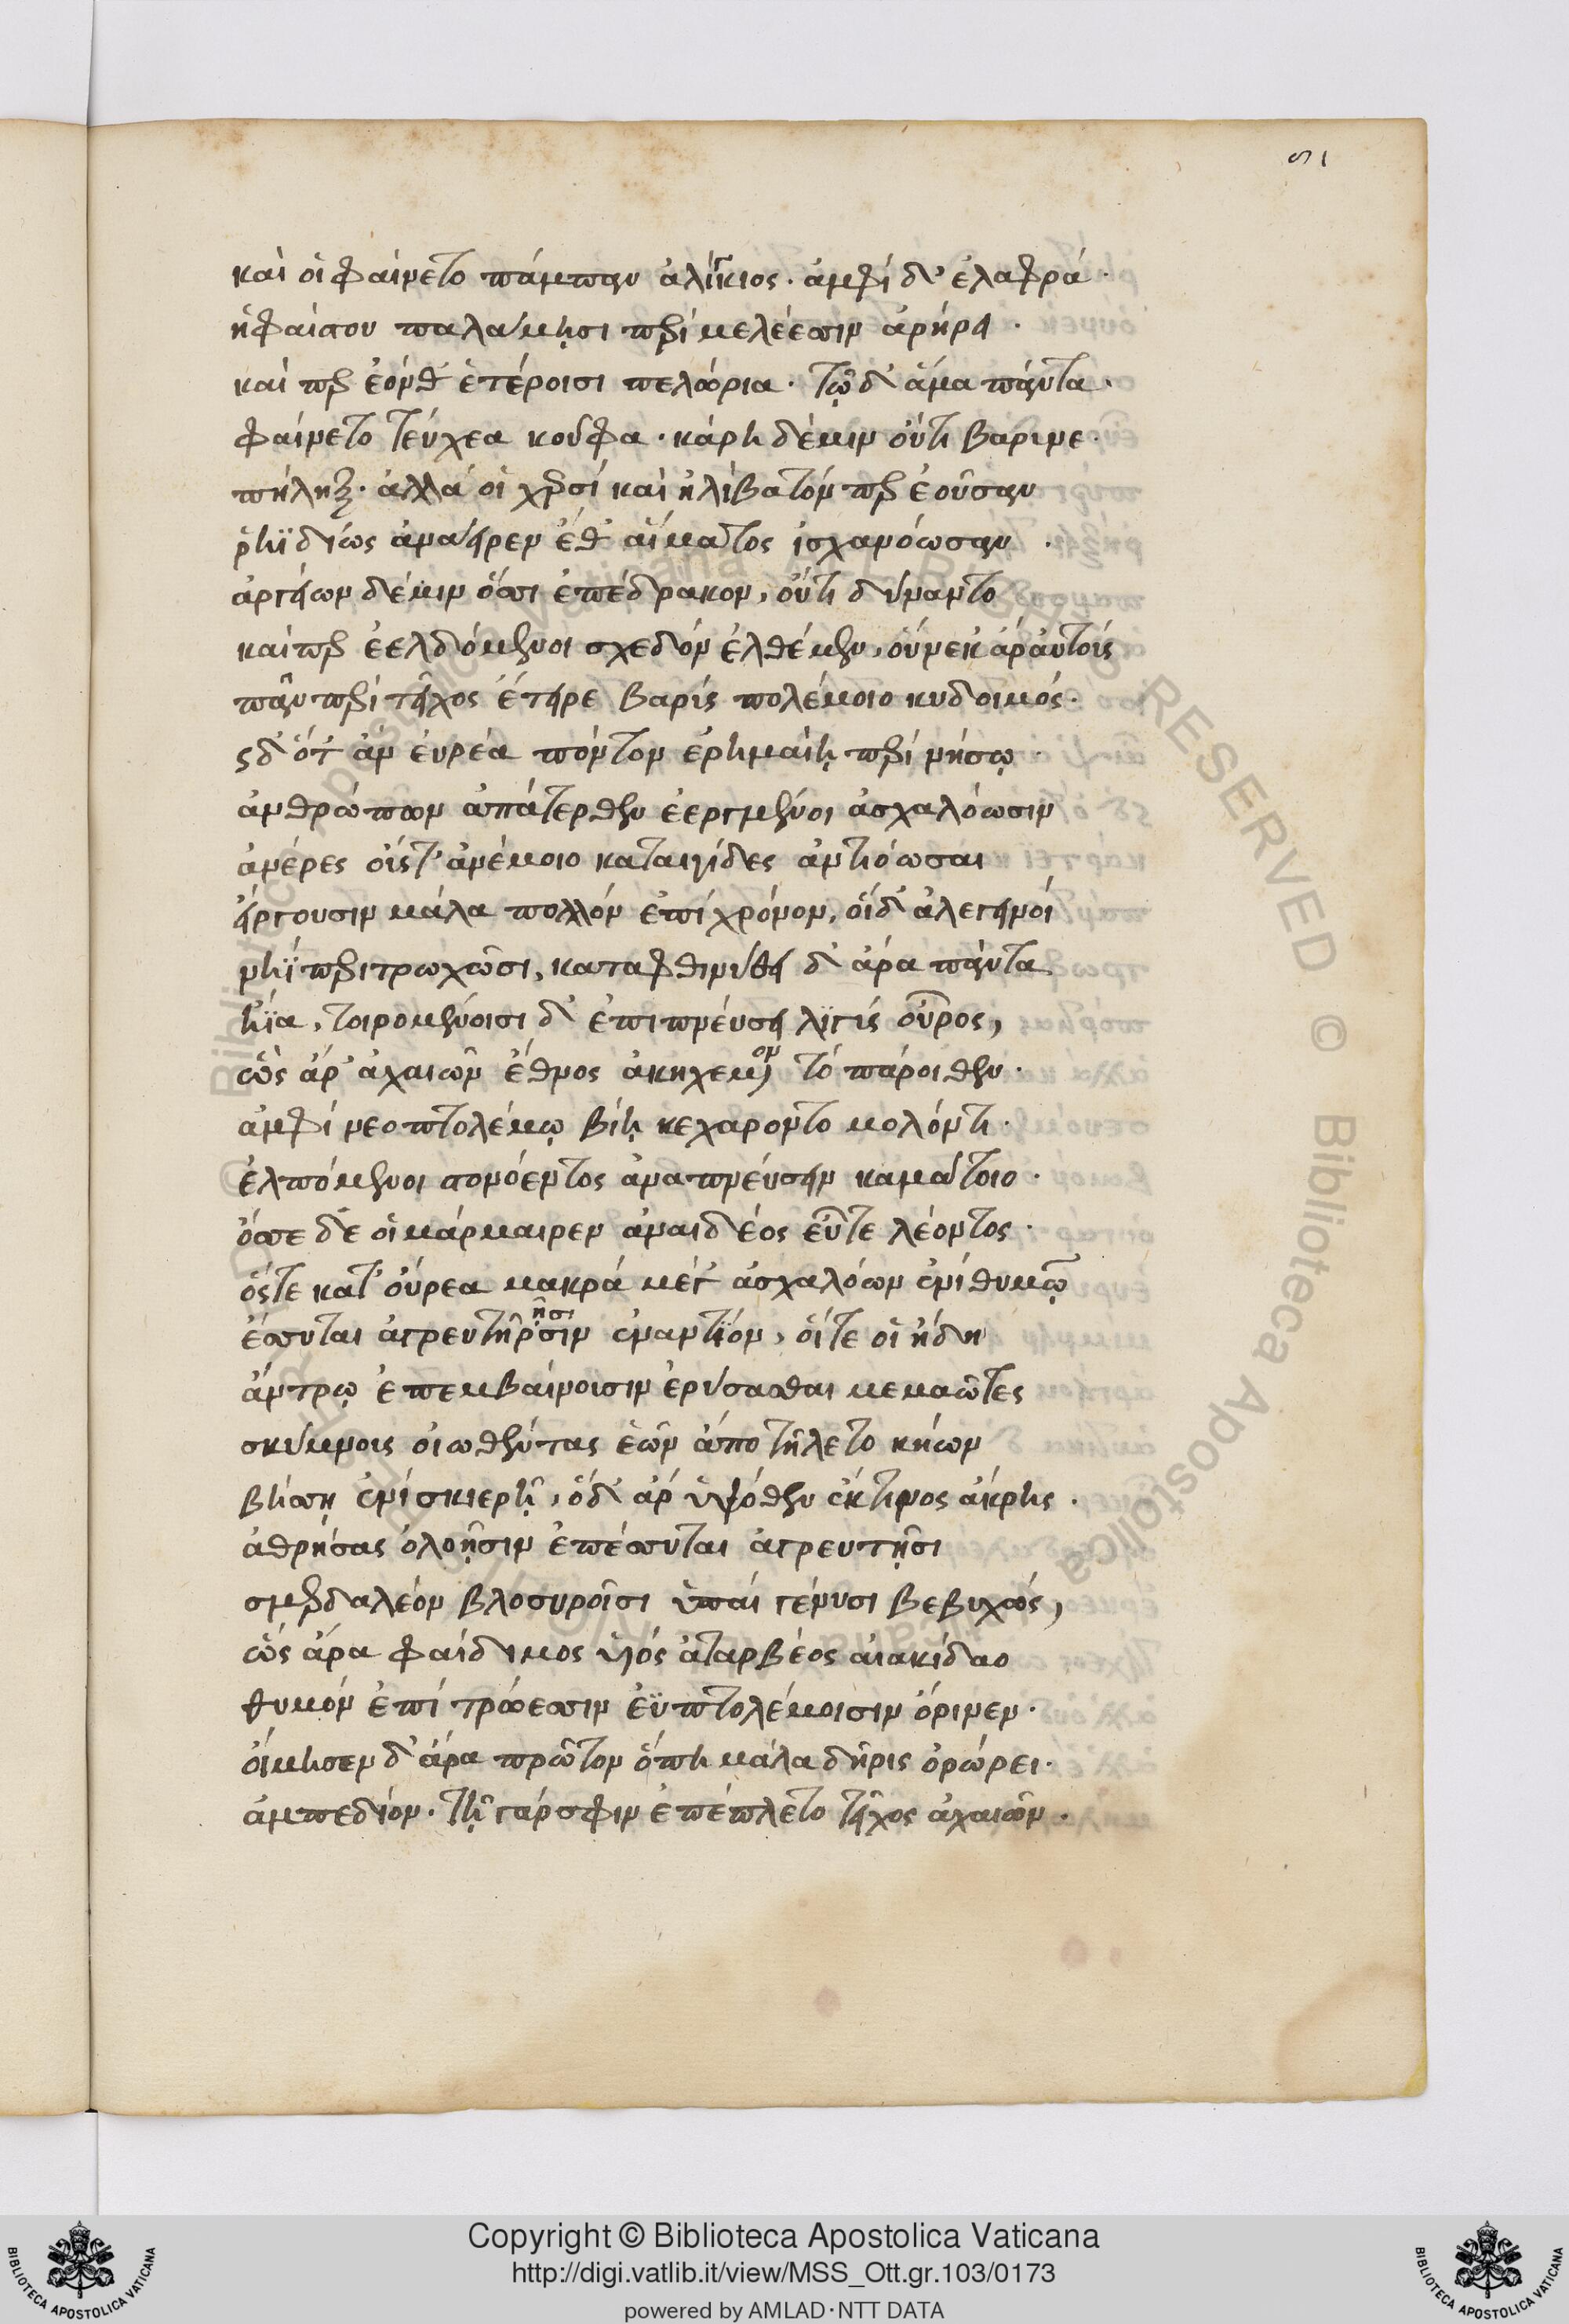 ϛι
καὶ οἱ φαίνετο πάμπαν ἀλίγκιος· ἀμφὶ δ' ἐλαφρά·
ἡφαίστου παλάμῃσι περὶ μελέεσσιν ἀρήρει·
καὶ περ ἐόνθ' ἑτέροισι πελώρια· τῷ δ' ἅμα πάντα·
φαίνετο τεύχεα κοῦφα· κάρη δέ μιν οὔτι βάρυνε·
πήληξ· ἀλλά οἱ χερσὶ καὶ ἠλίβατόν περ ἐοῦσαν
ῥηϊδίως ἀνάειρεν ἔθ' αἵματος ἰσχανόωσαν·
ἀργείων δέ μιν ὅσσοι ἐπέδρακον, οὔτι δύναντο
καίπερ ἐελδόμενοι σχεδὸν ἐλθέμεν, οὕνεκ' ἄρ' αὐτοὺς
πᾶν περὶ τεῖχος ἔτειρε βαρὺς πολέμοιο κυδοιμός·
ὡς δ' ὅτ' ἀν' εὐρέα πόντον ἐρημαίῃ περὶ νήσῳ·
ἀνθρώπων ἀπάτερθεν ἐεργμένοι ἀσχαλόωσιν
ἀνέρες οἷς τ' ἀνέμοιο καταιγίδες ἀντιόωσαι
εἴργουσιν μάλα πολλὸν ἐπὶ χρόνον, οἱ δ' ἀλεγεινοὶ
νηῒ περιτρωχῶσι, καταφθινύθει δ' ἄρα πάντα
ἤϊα, τειρομένοισι δ' ἐπιπνεύσει λιγὺς οὖρος,
ὣς ἄρ' ἀχαιῶν ἔθνος ἀκηχέμενον τὸ πάροιθεν·
ἀμφὶ νεοπτολέμῳ βίῃ κεχάροντο μολόντι·
ἐλπόμενοι στονόεντος ἀναπνεύσειν καμάτοιο·
ὄσσε δέ οἱ μάρμαιρεν ἀναιδέος εὖτε λέοντος·
ὅς τε κατ' οὔρεα μακρὰ μέγ' ἀσχαλόων ἐνὶ θυμῷ
ἔσσυται ἀγρευτῆρσιν ἐναντίον, οἵ τε οἱ ἤδη
ῇσι
ἄντρῳ ἐπεμβαίνοισιν ἐρύσασθαι μεμαῶτες
σκύμνοις οἰωθέντας ἑῶν ἀπὸ τῆλε τοκήων
βήσσῃ ἐνὶ σκιερῇ, ὁ δ' ἄρ' ὑψόθεν ἔκ τινος ἄκρης·
ἀθρήσας ὀλοῇσιν ἐπέσσυται ἀγρευτῇσι
σμερδαλέον βλοσυροῖσι ὑπαὶ γένυσι βεβυχώς,
ὣς ἄρα φαίδιμος υἱὸς ἀταρβέος αἰακίδαο
θυμὸν ἐπὶ τρώεσσιν ἐϋπτολέμοισιν ὄρινεν·
οἴμησεν δ' ἄρα πρῶτον ὅπη μάλα δῆρις ὀρώρει·
ἀμπεδίον· τῇ γάρ σφιν ἐπέπλετο τεῖχος ἀχαιῶν·
Copyright © Biblioteca Apostolica Vaticana
http://digi.vatlib.it/view/MSS_Ott.gr.103/0173
powered by AMLAD·NTT DATA
BIBLIOTECA APOSTOLICA VATICANA
BIBLIOTECA APOSTOLICA VATICANA